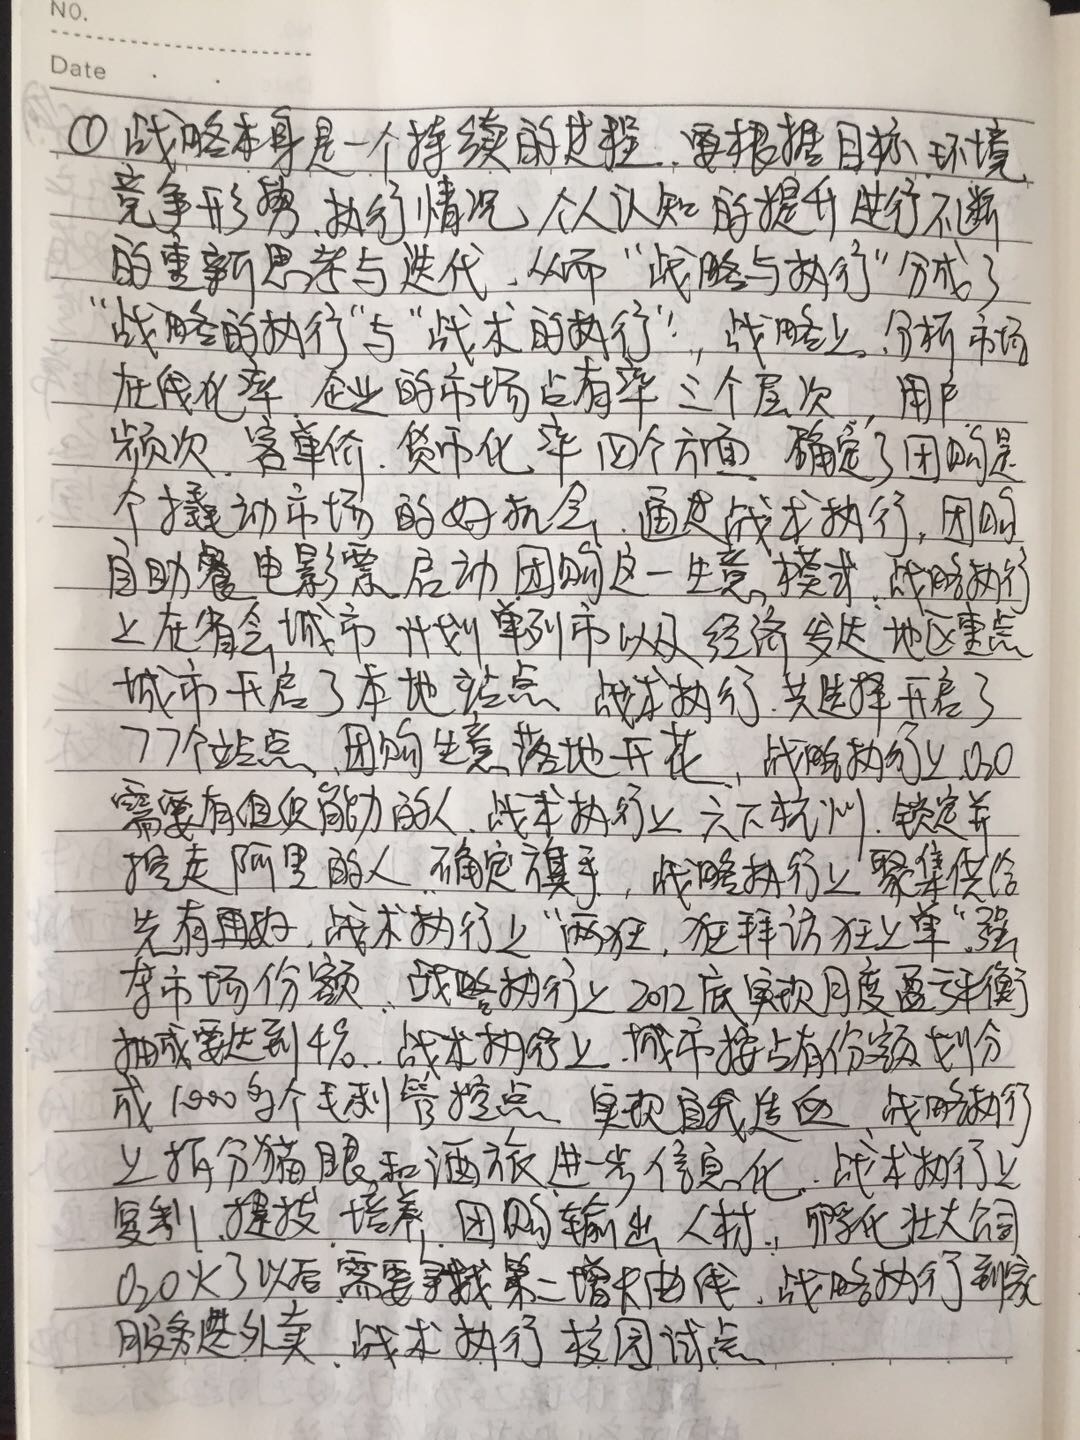 NO.
Date
① 战略本身是一个持续的过程、要根据目标、环境
竞争形势、执行情况、个人认知的提升进行不断
的重新思考与迭代、从而“战略与执行”分成了
“战略的执行”与“战术的执行”!，战略上、分析市场
在线化率、企业的市场占有率三个层次，用户
频次、客单价、货币化率四个方面、确定了团购是
个撬动市场的好机会、通过战术执行，团购
自助餐、电影票启动团购这一生意模式、战略执行
上在省会城市计划单列市以及经济发达地区重点
城市开启了本地站点、战术执行、共选择开启了
77个站点、团购生意落地开花，战略执行上O2O
需要有组织能力的人、战术执行上六下杭州、锁定并
挖走阿里的人、确定旗手，战略执行上聚集供给
先有再好、战术执行上“两狂，狂拜访狂上单”、强
夺市场份额、战略执行上2012底实现月度盈亏平衡
抽成要达到4%、战术执行上、城市按占有份额划分
成1000多个毛利管控点、实现自我造血、战略执行
上拆分猫眼和酒旅进一步信息化、战术执行上
复制、提拔、培养、团购输出人材，孵化壮大公司
O2O火了以后需要寻找第二增长曲线、战略执行到家
服务选外卖、战术执行校园试点